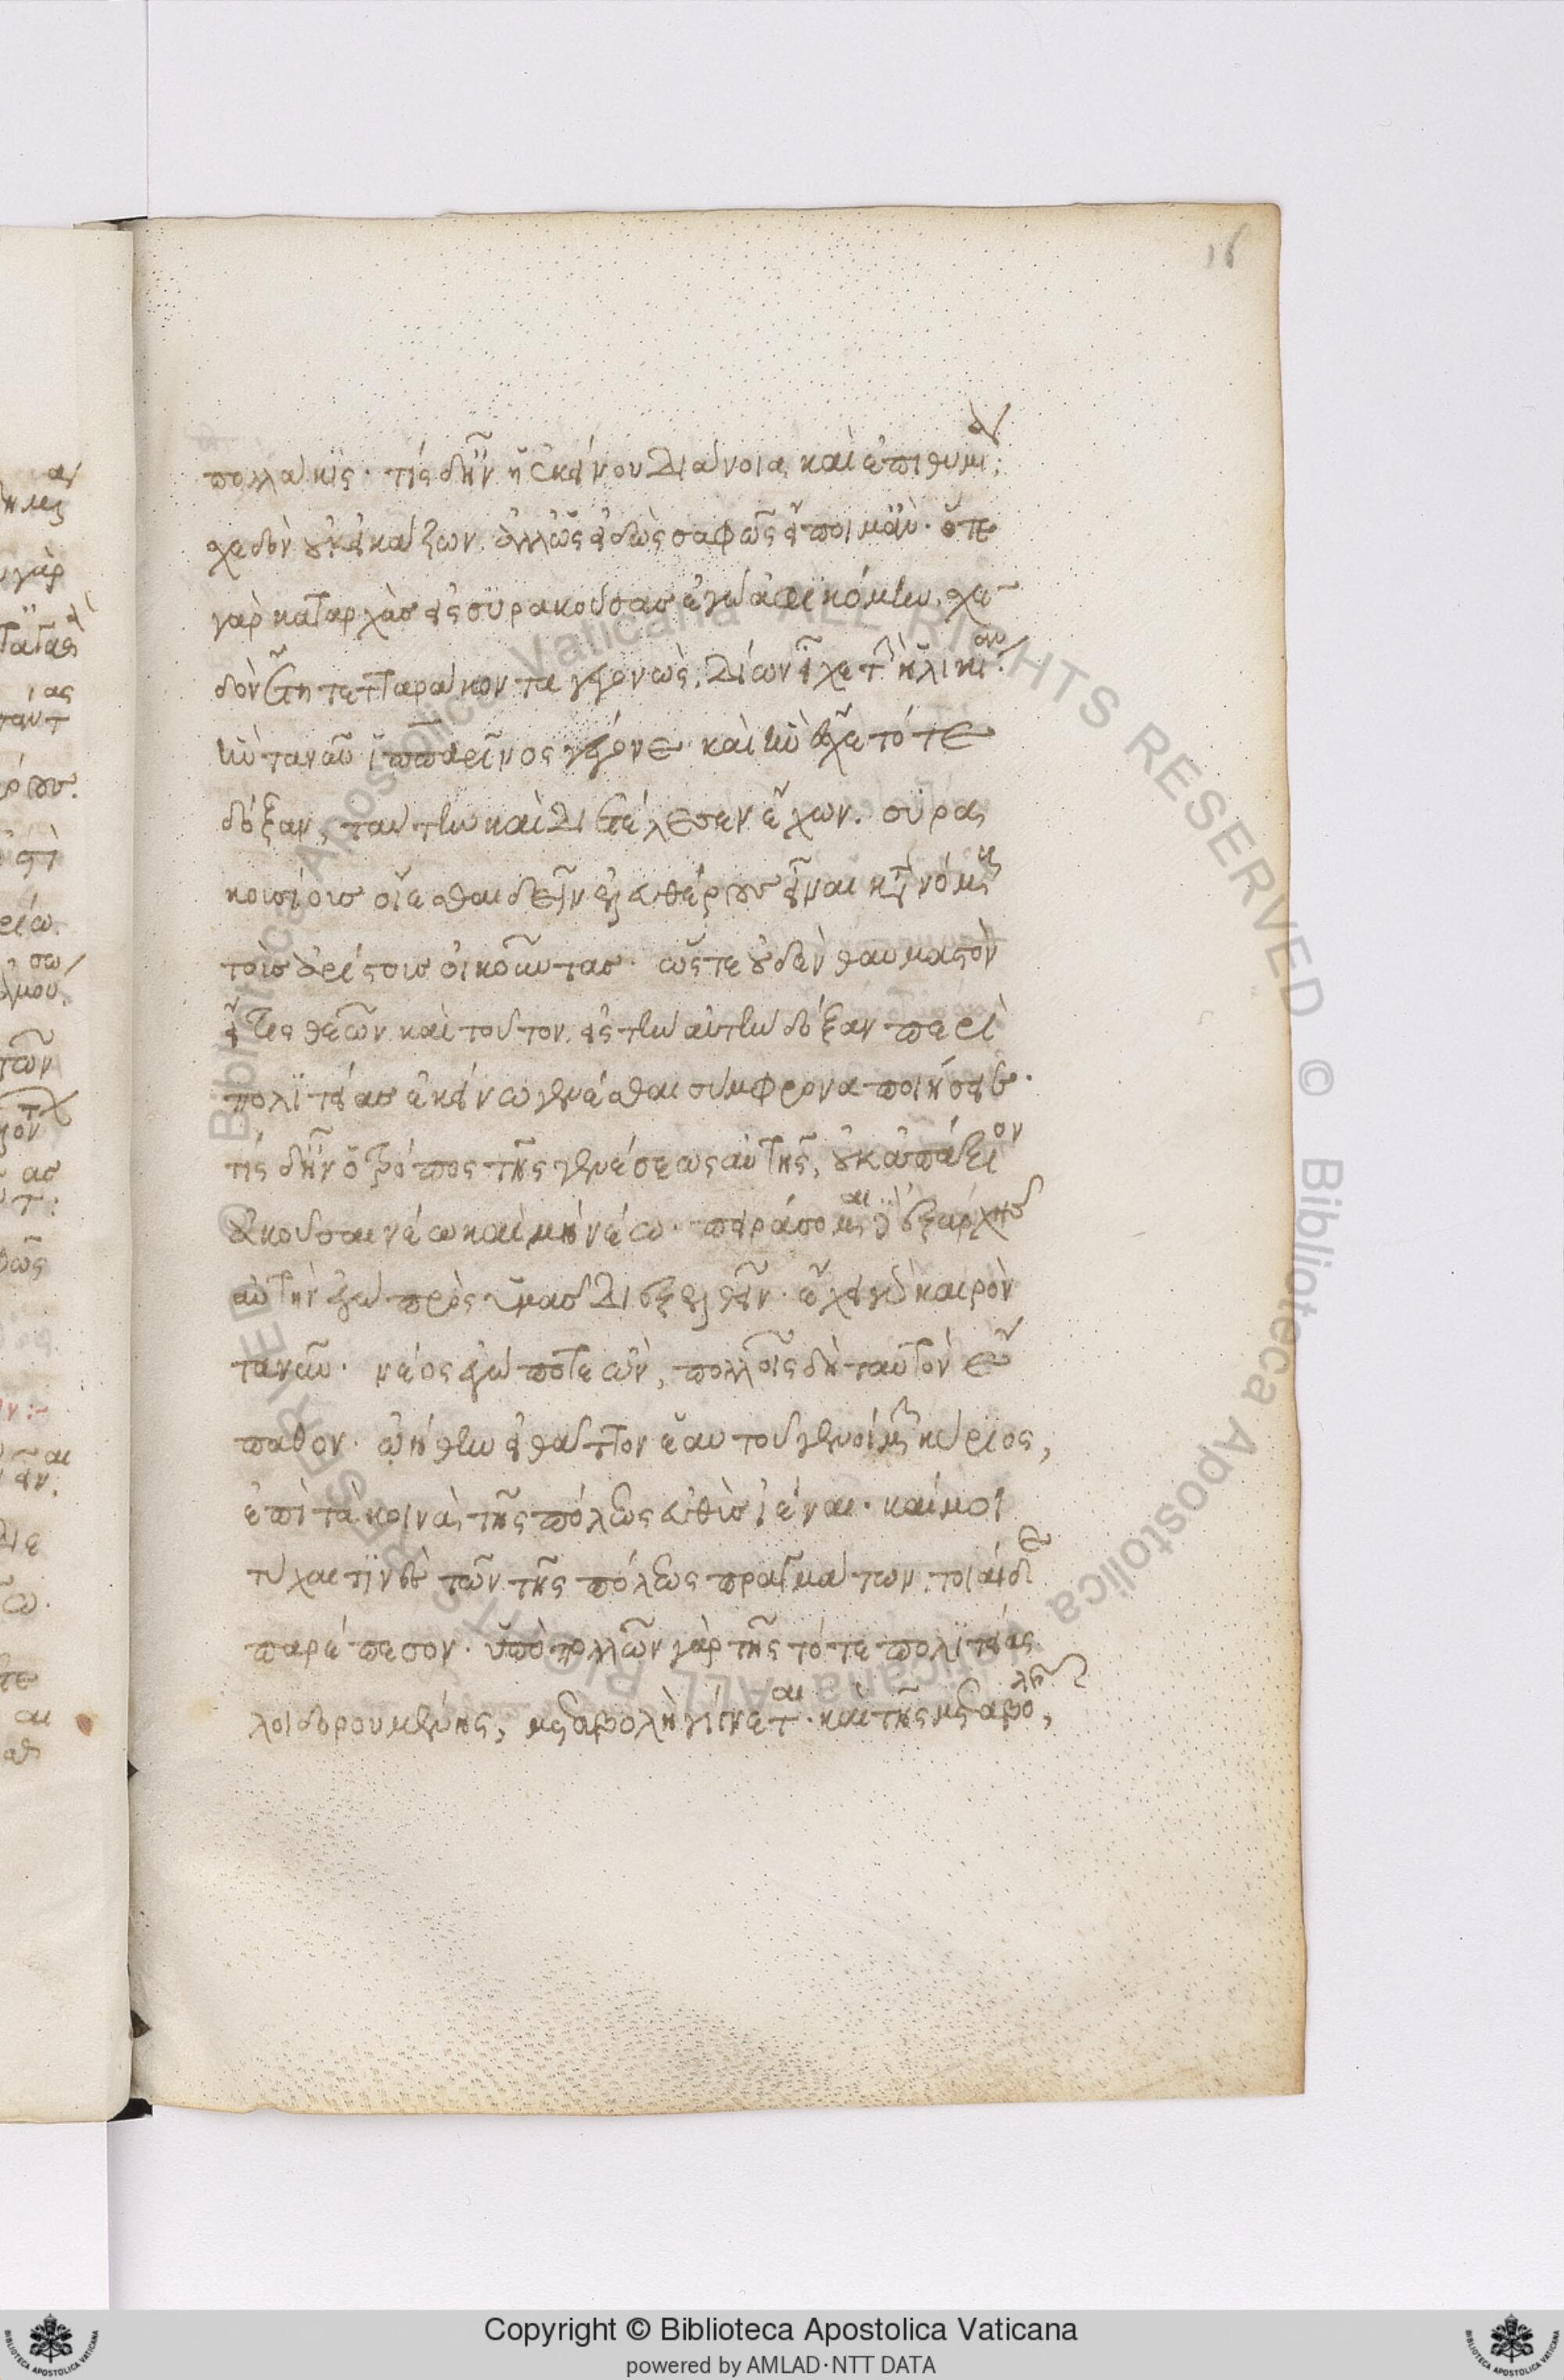 16
πολλάκις· τίς δ' ἦν ἡ ἐκείνου διάνοια καὶ ἐπιθυμία;
σχεδὸν οὐκ εἰκάζων, ἀλλ' ὡς εἰδὼς σαφῶς εἴποιμ' ἄν· ὅτε
γὰρ κατ' ἀρχὰς εἰς συρακούσας ἐγὼ ἀφικόμην, σχε
δὸν ἔτη τετταράκοντα γεγονὼς, δίων εἶχε τὴν ἡλικίαν
ἣν τανῦν ἱππαρῖνος γέγονε· καὶ ἣν ἔσχε τότε
δόξαν, ταύτην καὶ διετέλεσεν ἔχων. συρα
κοσίους οἴεσθαι δεῖν ἐλευθέρους εἶναι κατὰ νόμους
τοὺς ἀρίστους οἰκοῦντας· ὥστε οὐδὲν θαυμαστὸν
εἴ τις θεῶν καὶ τοῦτον εἰς τὴν αὐτὴν δόξαν περὶ
πολιτείας ἐκείνω γενέσθαι σύμφρονα ποιήσειε·
τίς δ' ἦν ὁ τρόπος τῆς γενέσεως αὐτῆς, οὐκ ἀπάξιον
ἀκοῦσαι νέω καὶ μὴ νέω· πειράσομαι δὲ ἐξ ἀρχῆς
αὐτὴν ἐγὼ πρὸς ὑμᾶς διεξελθεῖν· ἔχει γὰρ καιρὸν
τανῦν· νέος ἐγώ ποτε ὢν, πολλοῖς δὴ ταὐτὸν ἔ
παθον· ᾠήθην εἰ θᾶττον ἐμαυτοῦ γενοίμην κύριος,
ἐπὶ τὰ κοινὰ τῆς πόλεως εὐθὺς ἰέναι· καί μοι
τύχαι τινὲς τῶν τῆς πόλεως πραγμάτων, τοιαίδε
παρέπεσον· ὑπὸ πολλῶν γὰρ τῆς τότε πολιτείας
λοιδορουμένης, μεταβολὴ γίνεται· καὶ τῆς μεταβολῆς,
Copyright © Biblioteca Apostolica Vaticana
powered by AMLAD·NTT DATA